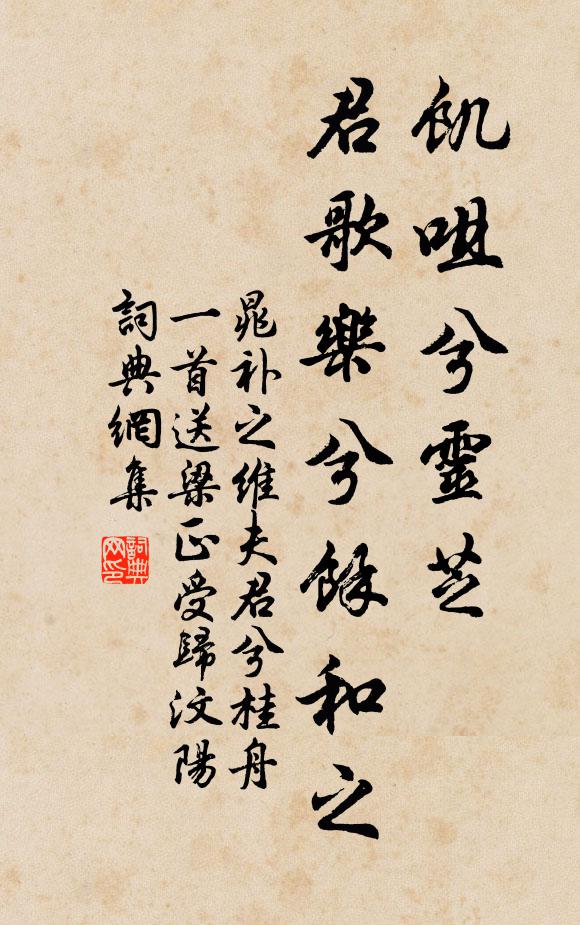 飢咀兮靈芝
君歌樂兮餘和之
晁补之維夫君兮桂舟
一首送梁正受歸汶陽
詞典網集
詞典
网印